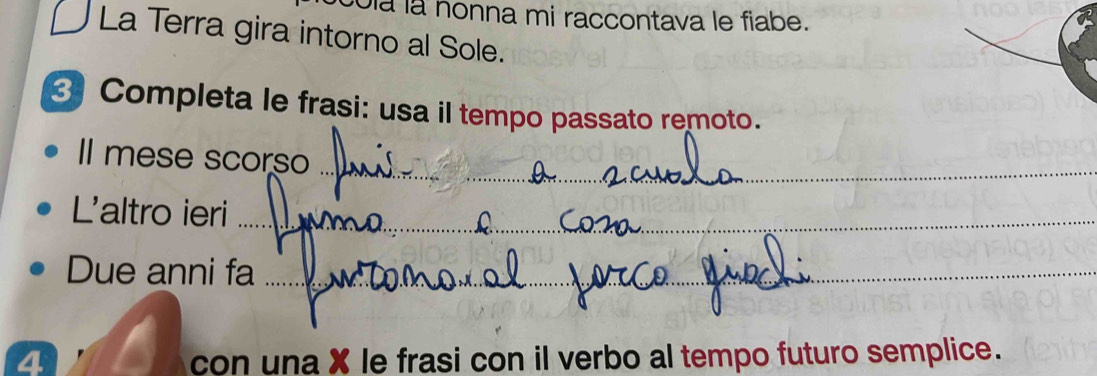 la nonna mi raccontava le fiabe.
La Terra gira intorno al Sole.
3 Completa le frasi: usa il tempo passato remoto.
• Il mese scorso fui a scuola
• L'altro ieri fummo a casa
• Due anni fa al parco giochi
4 con una X le frasi con il verbo al tempo futuro semplice.